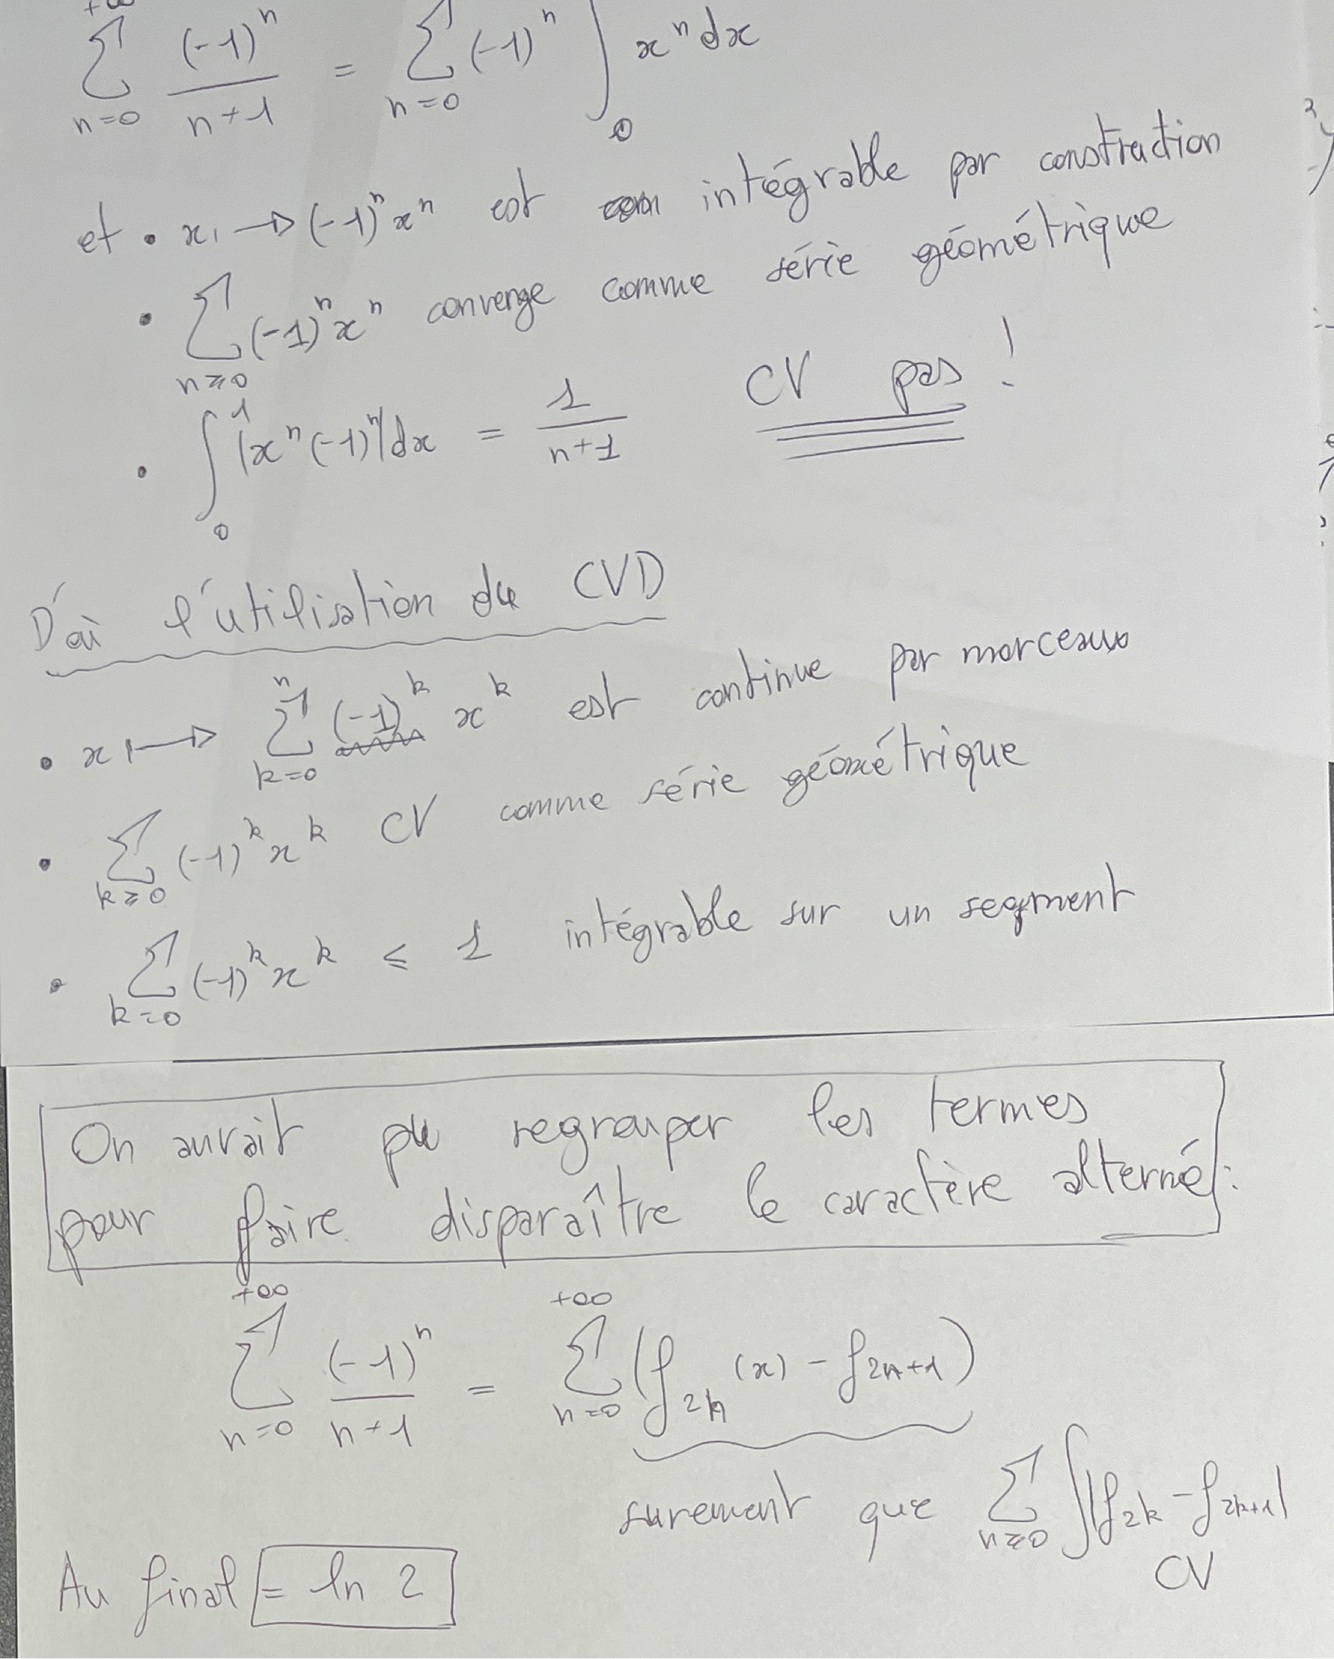 +∞
∑ (-1)^n / (n+1) = ∑ (-1)^n ∫ x^n dx
n=0 n=0 0
et • x ↦ (-1)^n x^n est intégrable par construction
• ∑ (-1)^n x^n converge comme série géométrique
n⩾0
• ∫_0^1 |x^n (-1)^n| dx = 1/(n+1) CV pas !
D'où l'utilisation du CVD
• x ↦ ∑_{k=0}^n (-1)^k x^k est continue par morceaux
• ∑_{k⩾0} (-1)^k x^k CV comme série géométrique
• ∑_{k=0} (-1)^k x^k ⩽ 1 intégrable sur un segment
On aurait pu regrouper les termes
pour faire disparaître le caractère alterné :
∑_{n=0}^{+∞} (-1)^n / (n+1) = ∑_{n=0}^{+∞} (f_{2n}(x) - f_{2n+1})
surement que ∑_{n⩾0} ∫|f_{2k} - f_{2k+1}|
CV
Au final = ln 2